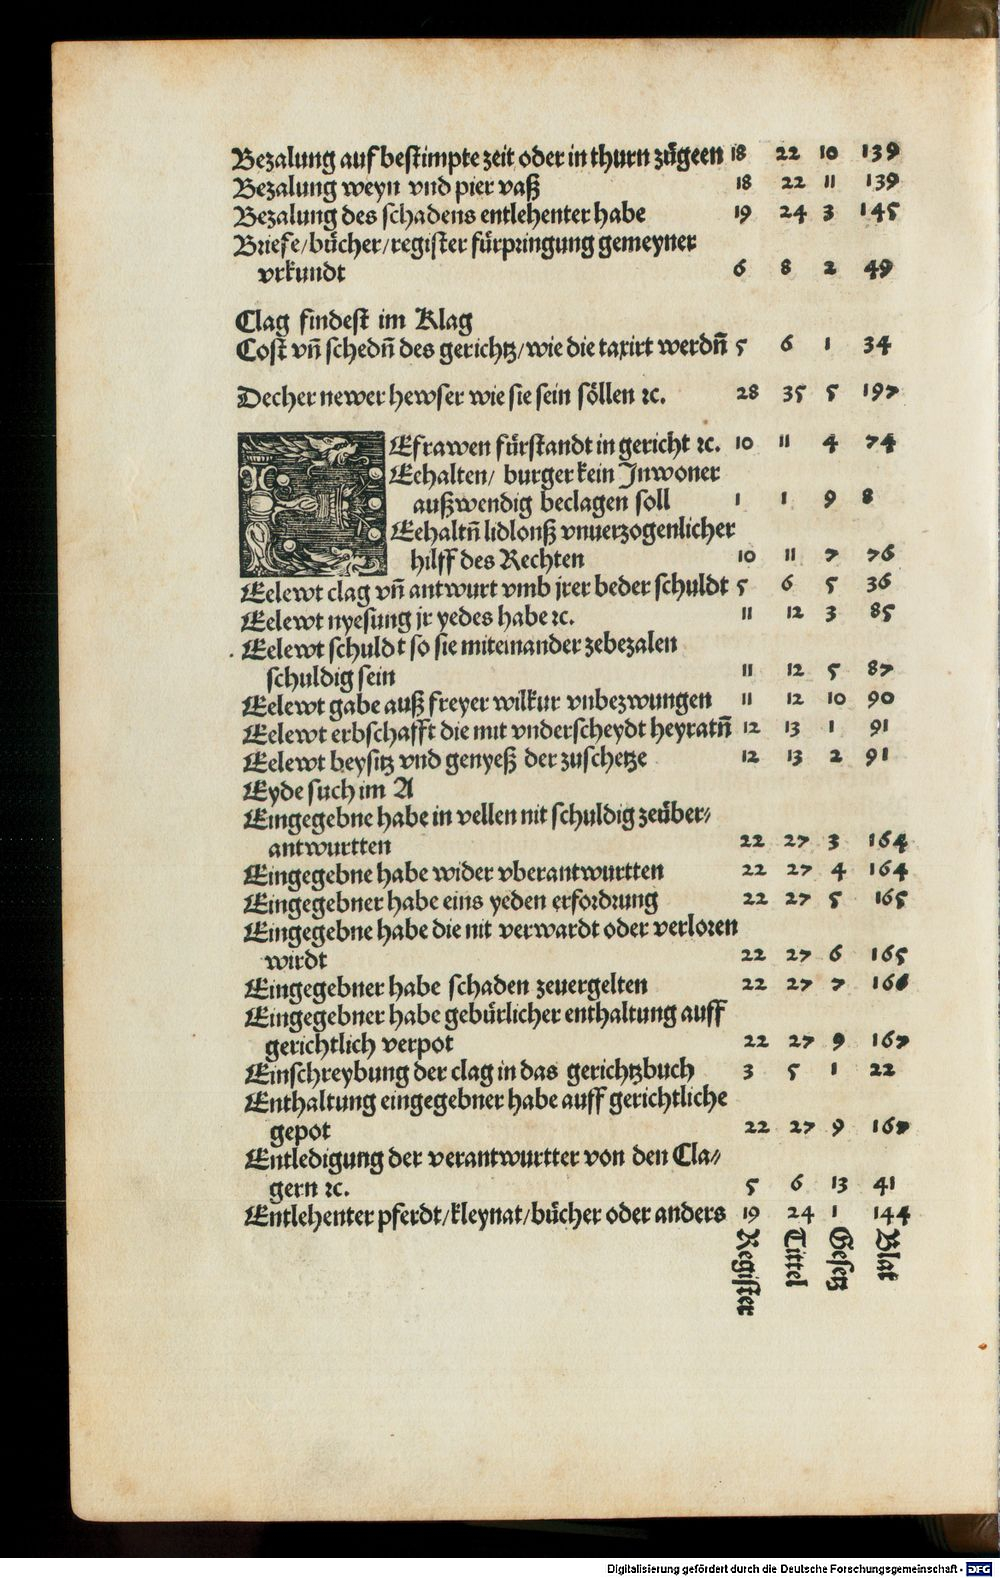 Bezalung auf bestimpte zeit oder in thurn zůgeen 18 22 10 139
Bezalung weyn vnd pier vaß 18 22 11 139
Bezalung des schadens entlehenter habe 19 24 3 145
Briefe/bücher/register fürpringung gemeyner
vrkundt 6 8 2 49
Clag findest im Klag
Cost vñ schedñ des gerichtz/wie die taxirt werdñ 5 6 1 34
Decher newer hewser wie sie sein söllen ꝛc. 28 35 5 197
Eefrawen fürstandt in gericht ꝛc. 10 11 4 74
Eehalten/ burger kein Inwoner
außwendig beclagen soll 1 1 9 8
Eehaltñ lidlonß vnuerzogenlicher
hilff des Rechten 10 11 7 76
Eelewt clag vñ antwurt vmb jrer beder schuldt 5 6 5 36
Eelewt nyesung jr yedes habe ꝛc. 11 12 3 85
Eelewt schuldt so sie miteinander zebezalen
schuldig sein 11 12 5 87
Eelewt gabe auß freyer wilkur vnbezwungen 11 12 10 90
Eelewt erbschafft die mit vnderscheydt heyratñ 12 13 1 91
Eelewt beysitz vnd genyeß der zuschetze 12 13 2 91
Eyde such im A
Eingegebne habe in vellen nit schuldig zeüber⸗
antwurtten 22 27 3 164
Eingegebne habe wider vberantwurtten 22 27 4 164
Eingegebner habe eins yeden erfordrung 22 27 5 165
Eingegebne habe die nit verwardt oder verloren
wirdt 22 27 6 165
Eingegebner habe schaden zeuergelten 22 27 7 166
Eingegebner habe gebürlicher enthaltung auff
gerichtlich verpot 22 27 9 167
Einschreybung der clag in das gerichtzbuch 3 5 1 22
Enthaltung eingegebner habe auff gerichtliche
gepot 22 27 9 167
Entledigung der verantwurtter von den Cla⸗
gern ꝛc. 5 6 13 41
Entlehenter pferdt/kleynat/bücher oder anders 19 24 1 144
Register Tittel Gesetz Blat
Digitalisierung gefördert durch die Deutsche Forschungsgemeinschaft - DFG